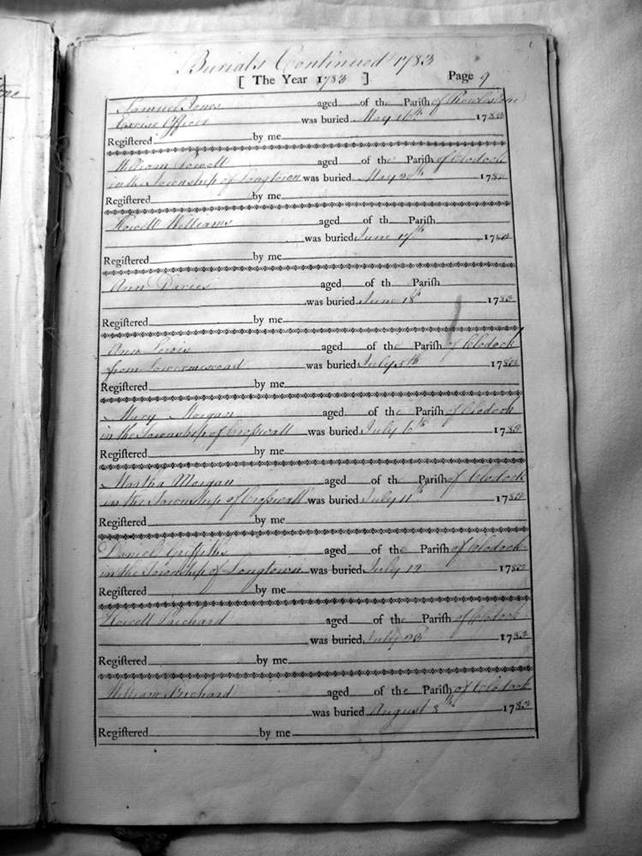 Burials Continued 1783
[ The Year 1783 ] Page 9
Samuel Jones aged of the Parish of Rowlstone
Excise Officer was buried May 16th 1783
Registered by me
William Powell aged of the Parish of Clodock
in the Township of Longtown was buried May 1783
Registered by me
Howell Williams aged of th Parish
was buried June 17th 1783
Registered by me
Ann Davies aged of th Parish
was buried June 18th 1783
Registered by me
Ann Lewis aged of the Parish of Clodock
from was buried July 5th 1783
Registered by me
Mary Morgan aged of the Parish of Clodock
in the Township of Craswall was buried July 6th 1783
Registered by me
Martha Morgan aged of the Parish of Clodock
in the Township of Craswall was buried July 11th 1783
Registered by me
Daniel Griffiths aged of the Parish of Clodock
in the Township of Longtown was buried July 12 1783
Registered by me
Howell Prichard aged of the Parish of Clodock
was buried July 23 1783
Registered by me
William Prichard aged of the Parish of Clodock
was buried August 8th 1783
Registered by me